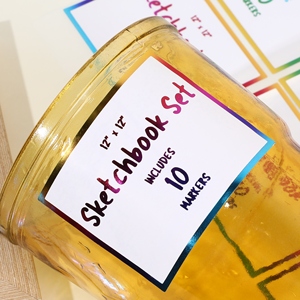 12" x 12"
Sketchbook Set
INCLUDES
10
MARKERS
12" x 12"
MARKERS